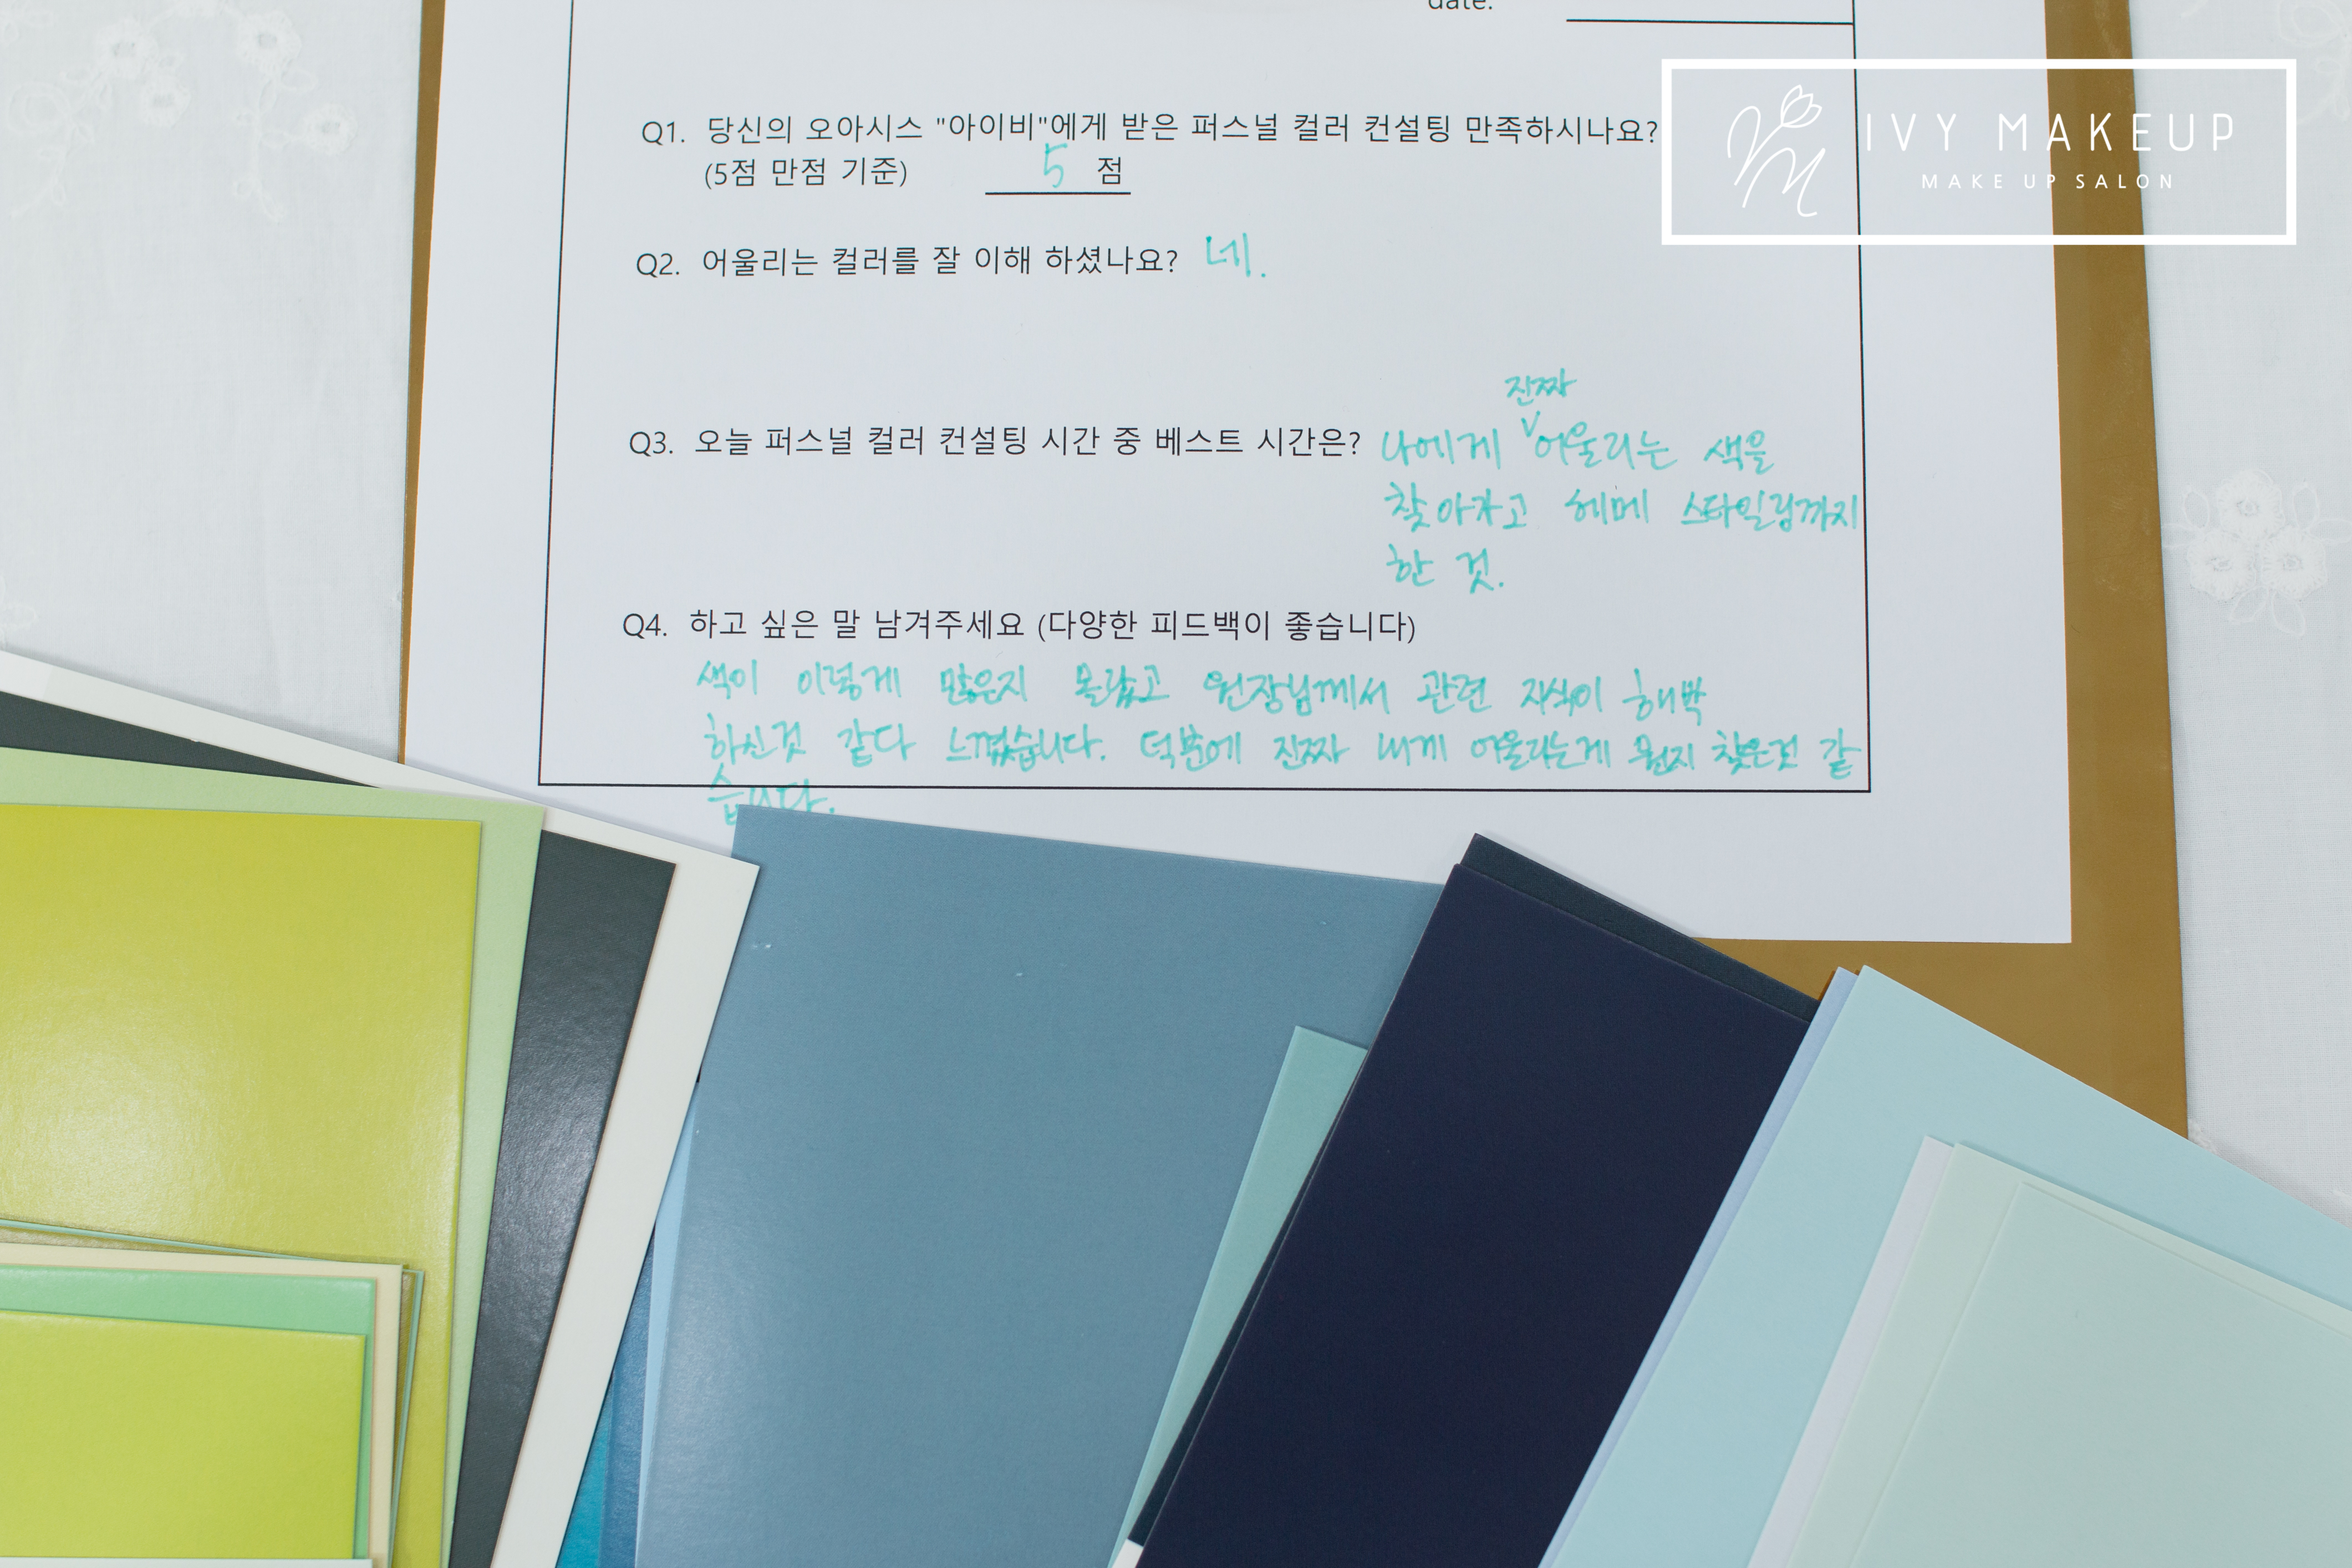 date:
IVY MAKEUP
MAKE UP SALON
Q1. 당신의 오아시스 "아이비"에게 받은 퍼스널 컬러 컨설팅 만족하시나요?
(5점 만점 기준) 5 점
Q2. 어울리는 컬러를 잘 이해 하셨나요? 네.
진짜
Q3. 오늘 퍼스널 컬러 컨설팅 시간 중 베스트 시간은? 나에게 ∨ 어울리는 색을
찾아가고 헤메 스타일링까지
한 것.
Q4. 하고 싶은 말 남겨주세요 (다양한 피드백이 좋습니다)
색이 이렇게 많은지 몰랐고 원장님께서 관련 지식이 해박
하신것 같다 느꼈습니다. 덕분에 진짜 내게 어울리는게 뭔지 찾은것 같
습니다.